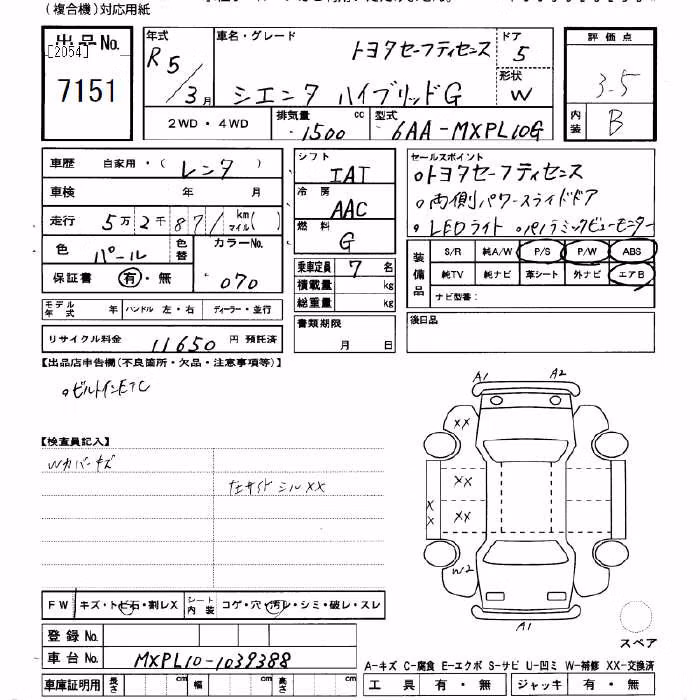 (複合機)対応用紙
出品No.
[2054]
7151
年式
R5/3月
車名・グレード
トヨタセーフティセンス
シエンタ ハイブリッドG
ドア
5
形状
W
2WD・4WD
排気量
1500 cc
型式
6AA-MXPL10G
評価点
3.5
内装
B
車歴 自家用・(レンタ)
車検 年 月
走行 5万2千871 km マイル( )
色 パール 色替 カラーNo. 070
保証書 有・無
モデル年式 年 ハンドル 左・右 ディーラー・並行
リサイクル料金 11650 円 預託済
シフト
IAT
冷房
AAC
燃料
G
乗車定員 7 名
積載量 kg
総重量 kg
書類期限
月 日
セールスポイント
○トヨタセーフティセンス
○両側パワースライドドア
○LEDライト ○パノラミックビューモニター
装備品
S/R 純A/W P/S P/W ABS
純TV 純ナビ 革シート 外ナビ エアB
ナビ型番:
後日品
【出品店申告欄(不良箇所・欠品・注意事項等)】
○ビルトインETC
【検査員記入】
Wカバーキズ
左サイドシルXX
A1 A2
XX
XX
XX
XX
W2
A1
スペア
FW キズ・トビ石・割レX シート内装 コゲ・穴・汚レ・シミ・破レ・スレ
登録No.
車台No. MXPL10-1039388
車庫証明用 長さ cm 幅 cm 高さ cm
A-キズ C-腐食 E-エクボ S-サビ U-凹ミ W-補修 XX-交換済
工具 有・無 ジャッキ 有・無